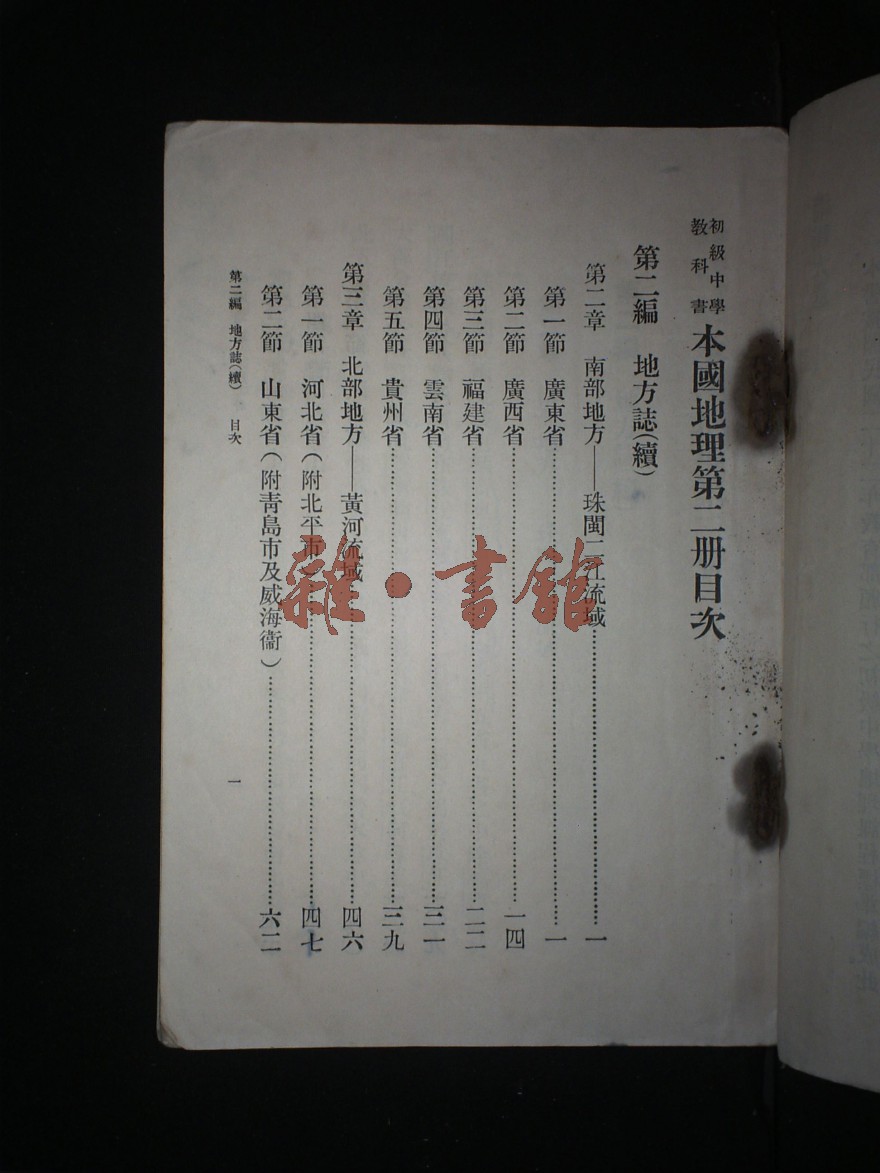 初級中學
教科書
本國地理第二册目次
第二編 地方誌(續)
第二章 南部地方——珠閩二江流域 一
第一節 廣東省 一
第二節 廣西省 一四
第三節 福建省 二二
第四節 雲南省 三一
第五節 貴州省 三九
第三章 北部地方——黃河流域 四六
第一節 河北省(附北平市) 四七
第二節 山東省(附靑島市及威海衞) 六二
第二編 地方誌(續) 目次 一
雜·書館